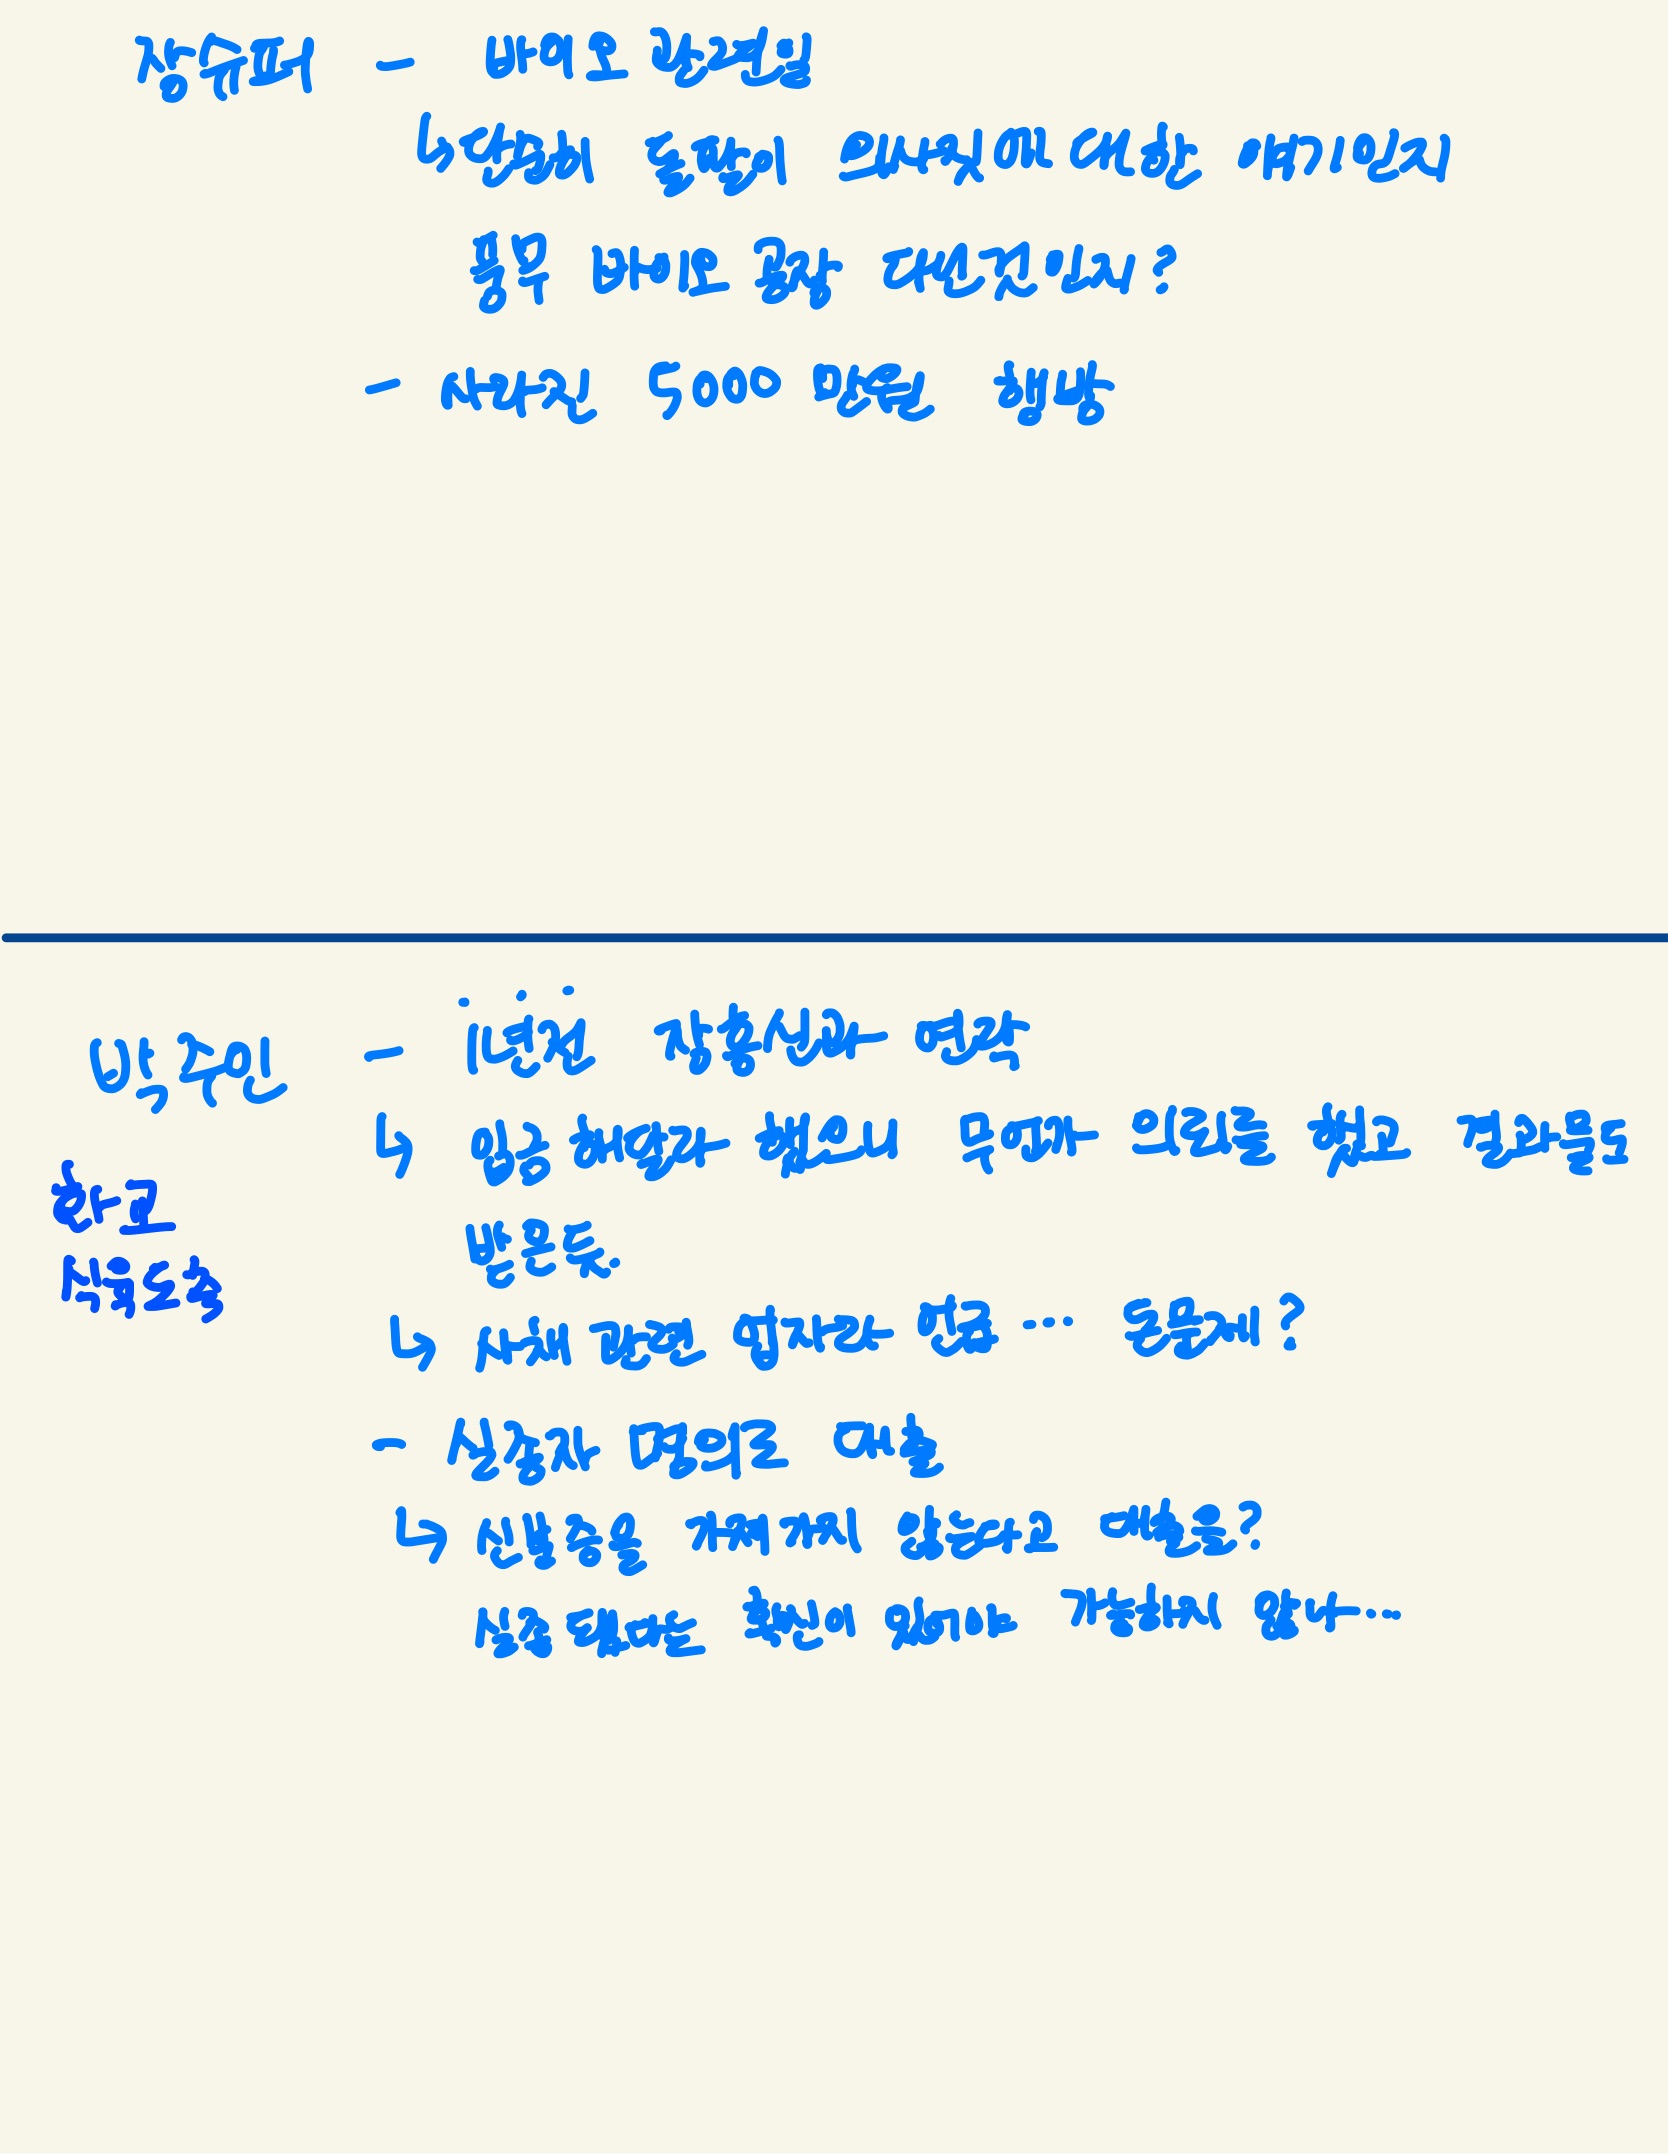 장슈퍼 - 바이오 관련일
↳ 단순히 돌팔이 의사짓에 대한 얘기인지
풍무 바이오 공장 다닌건인지?
- 사라진 5000만원 행방
박주민 - 1년전 장홍신과 연락
↳ 입금해달라 했으니 무언가 의뢰를 했고 결과물도
받은듯.
화교
식육도축
↳ 사채 관련 업자라 언급… 돈문제?
- 실종자 명의로 대출
↳ 신발증을 가져가지 않는다고 대출을?
실종 됐다는 확신이 있어야 가능하지 않나…